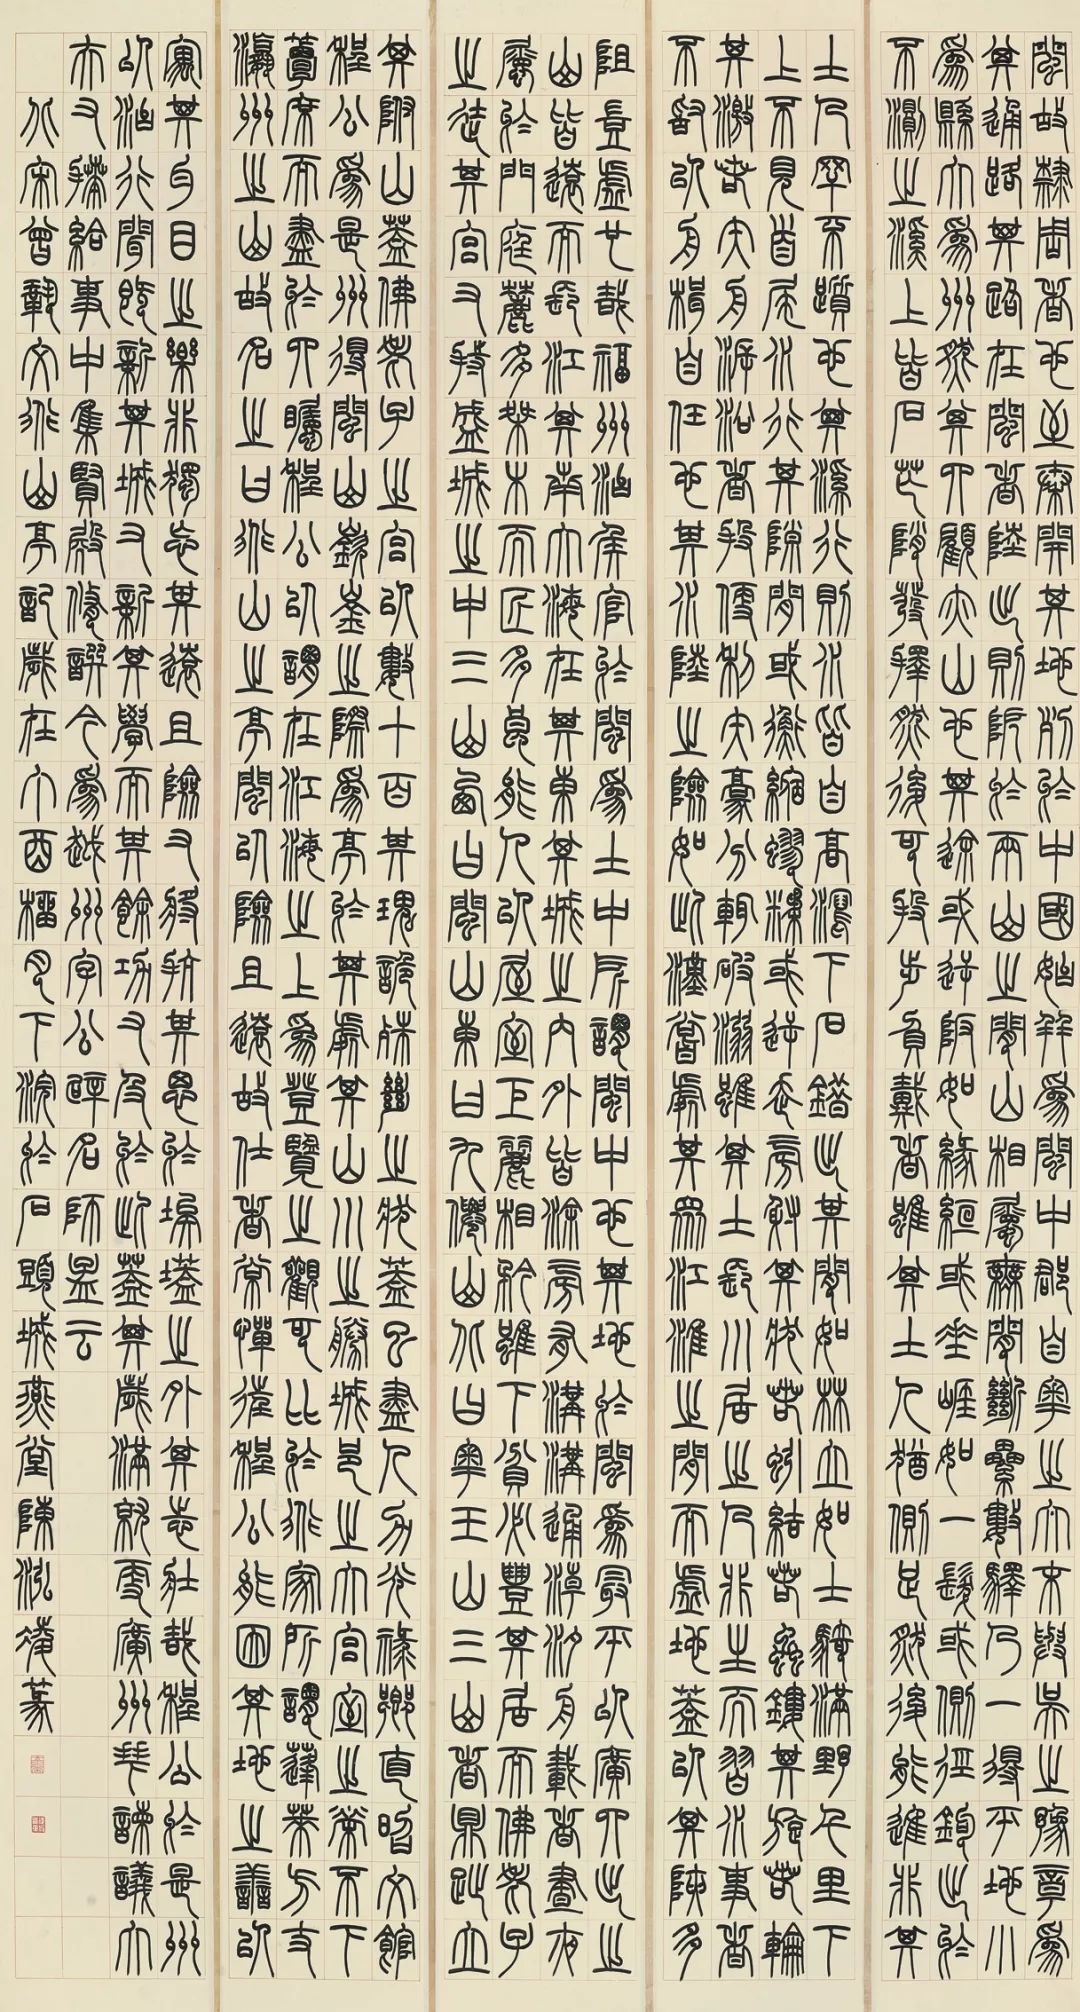 閩故隸周者也至秦開其地列於中國始并為閩中郡自粵之太末與吳之豫章為
其通路其路在閩者陸出則阸於兩山之間山相屬無間斷累數驛乃一得平地小
為縣大為州然其四顧亦山也其途或逆坂如緣絙或垂崖如一髮或側徑鉤出於
不測之溪上皆石芒峭發擇然後可投步負戴者雖其土人猶側足然後能進非其
土人罕不躓也其溪行則水皆自高瀉下石錯出其間如林立如士騎滿野千里下
上不見首尾水行其隙間或衡縮蟉糅或逆走旁射其狀若蚓結若蟲鏤其旋若輪
其激若矢舟溯沿者投便利失毫分輒破溺雖其土長川居之人非生而習水事者
不敢以舟楫自任也其水陸之險如此漢嘗處其眾江淮之間而虛其地蓋以其陿多
阻豈虛也哉福州治侯官於閩為土中所謂閩中也其地於閩為最平以廣四出之
山皆遠而長江其南大海在其東其城之內外皆涂旁有溝溝通潮汐舟載者晝夜
屬於門庭麓多桀木而匠多良能人以屋室鉅麗相矜雖下貧必豐其居而佛老子
之徒其宮又特盛城之中三山西曰閩山東曰九僊山北曰粵王山三山者鼎趾立
其附山蓋佛老子之宮以數十百其瑰詭殊絕之狀蓋已盡人力光祿卿直昭文館
程公為是州得閩山嶔崟之際為亭於其處其山川之勝城邑之大宮室之榮不下
簟席而盡於四矚程公以謂在江海之上為登覽之觀可比於道家所謂蓬萊方丈
瀛州之山故名之曰道山之亭閩以險且遠故仕者常憚往程公能因其地之善以
寓其耳目之樂非獨忘其遠且險又將抗其思於埃壒之外其志壯哉程公於是州
以治行聞既新其城又新其學而其餘功又及於此蓋其歲滿就更廣州拜諫議大
夫又拜給事中集賢殿修撰今為越州字公闢名師孟云
北宋曾鞏文道山亭記歲在丁酉榴月下浣於石頭城燕堂陳泓篆